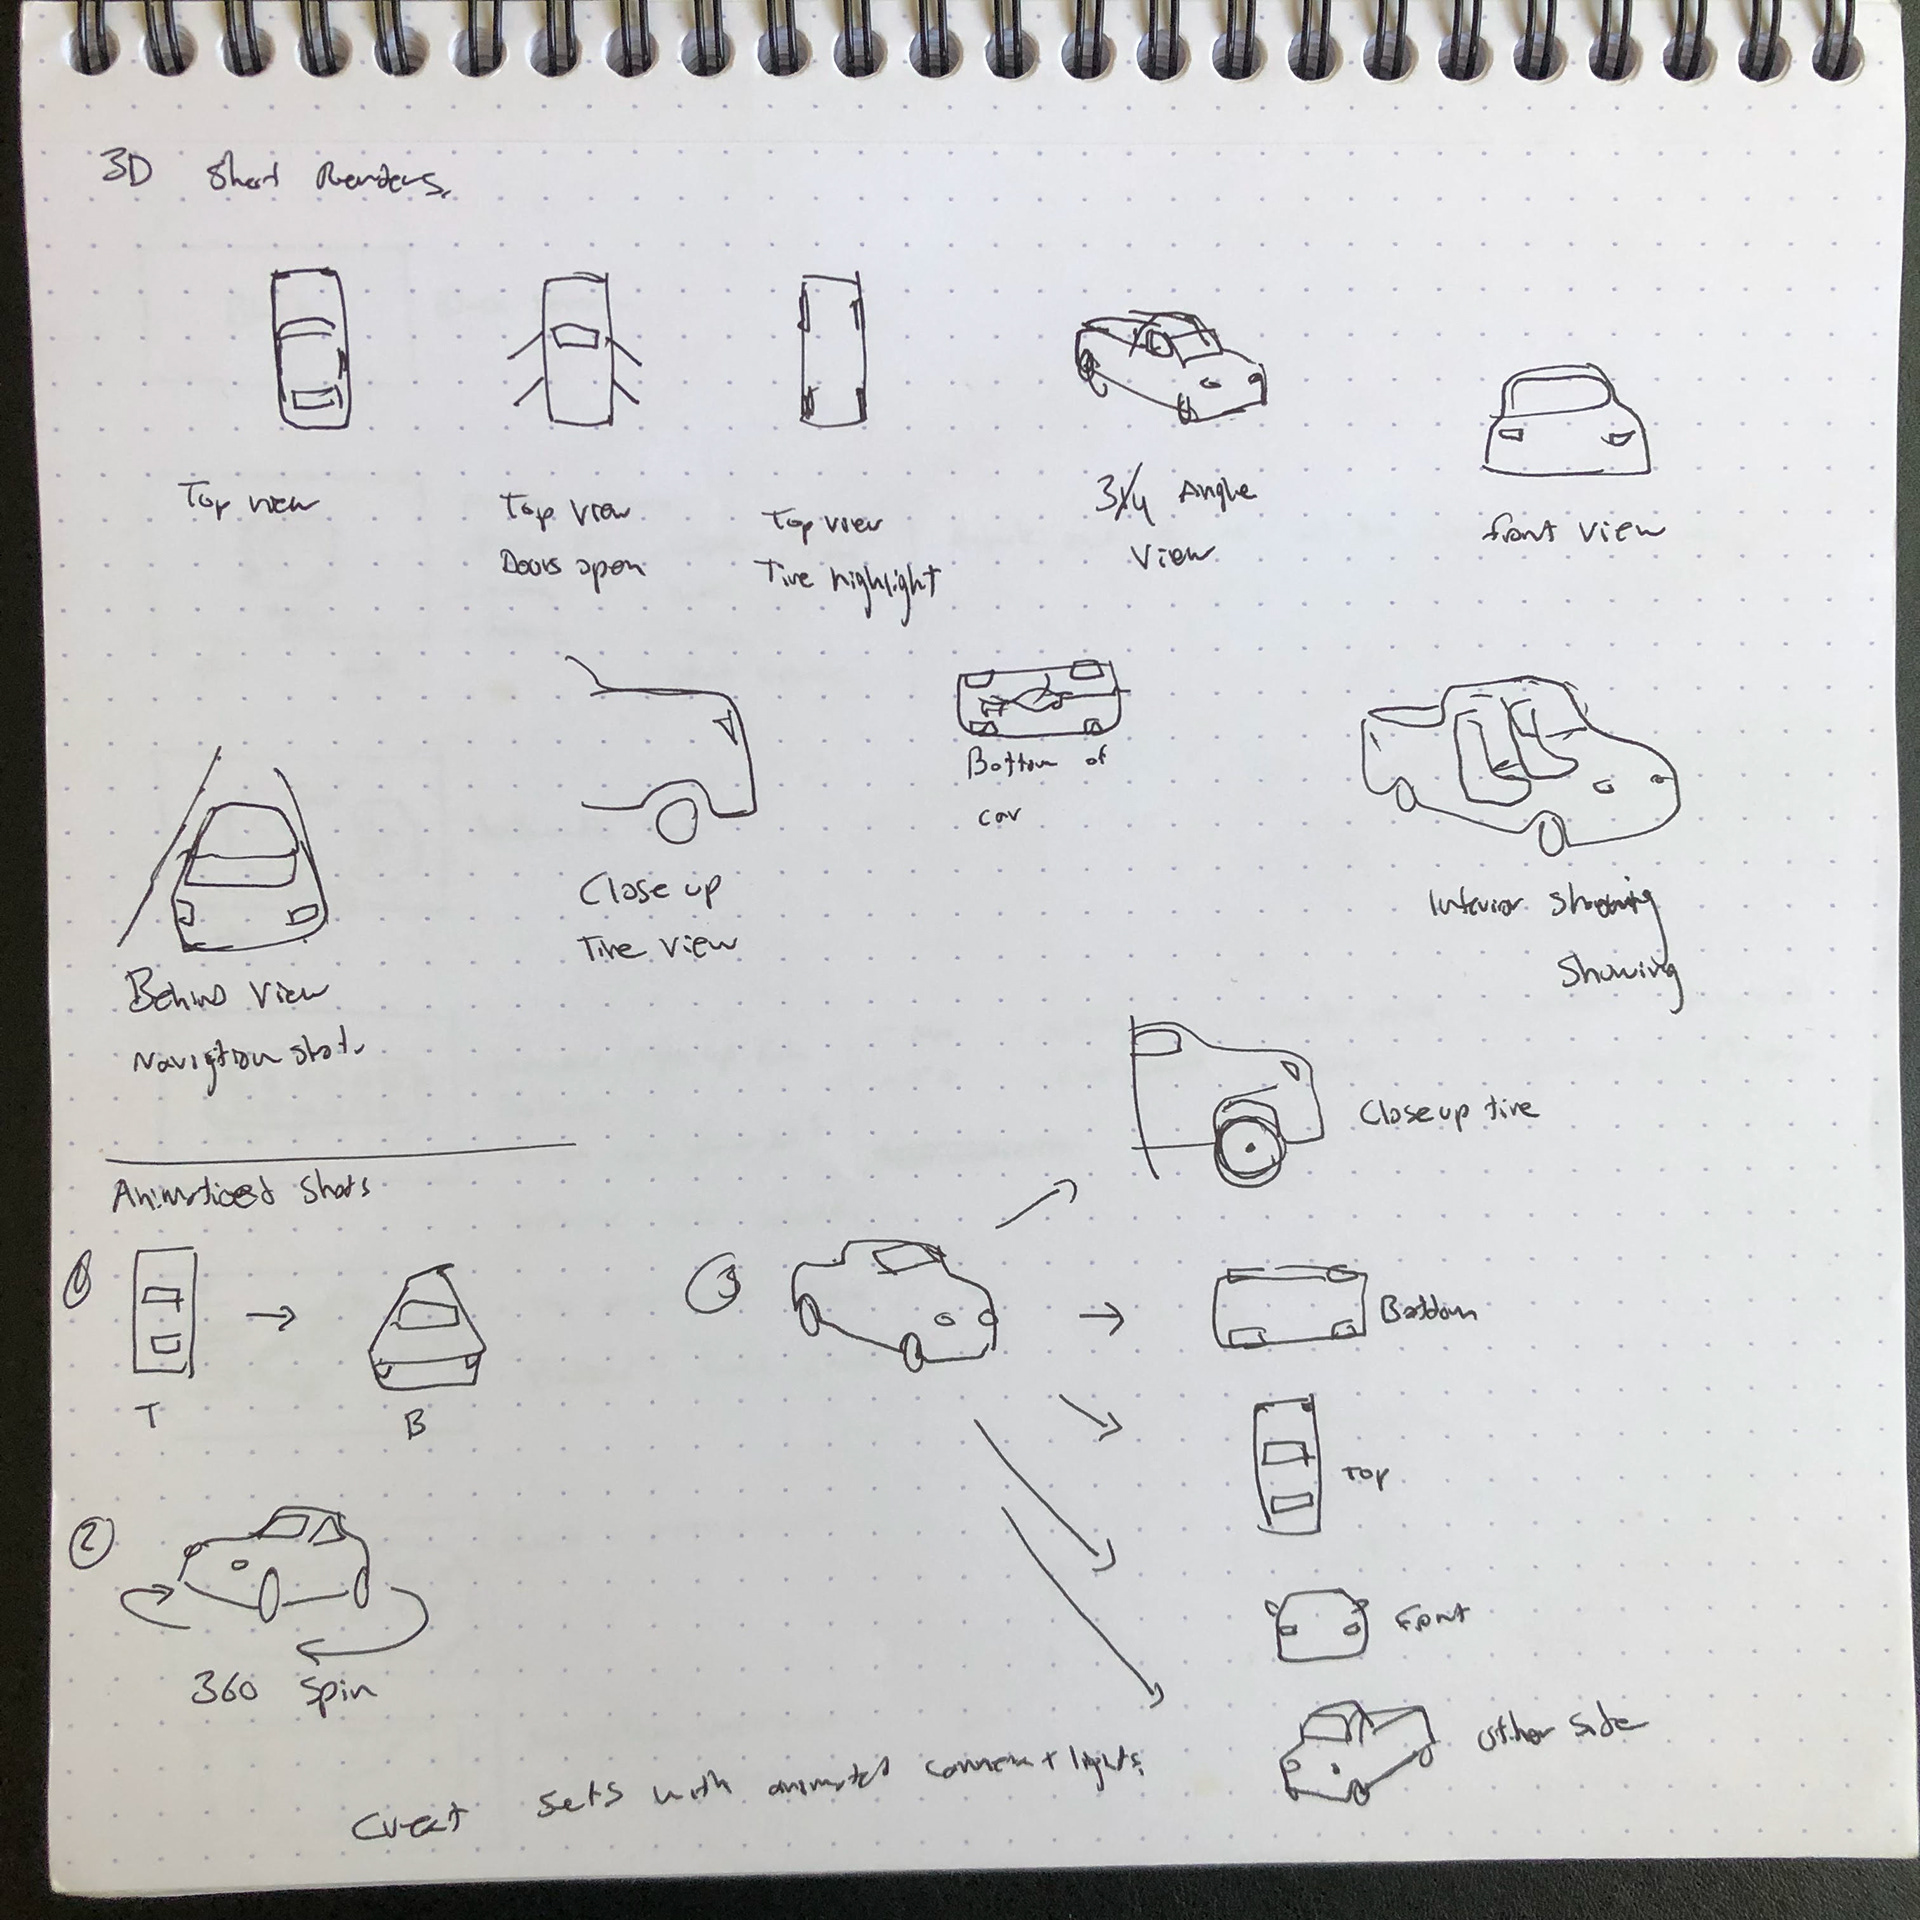 3D Shot Renders.
Top view
Top view
Doors open
Top view
Tire highlight
3/4 Angle
View
front view
Behind View
Navigtion shot.
Close up
Tire View
Bottom of
car
Interior
Showing
Close up tire
Animaticed Shots
1
T
B
3
Bottom
Top
2
360 Spin
Front
other side
Creat sets with animated camera + lights.